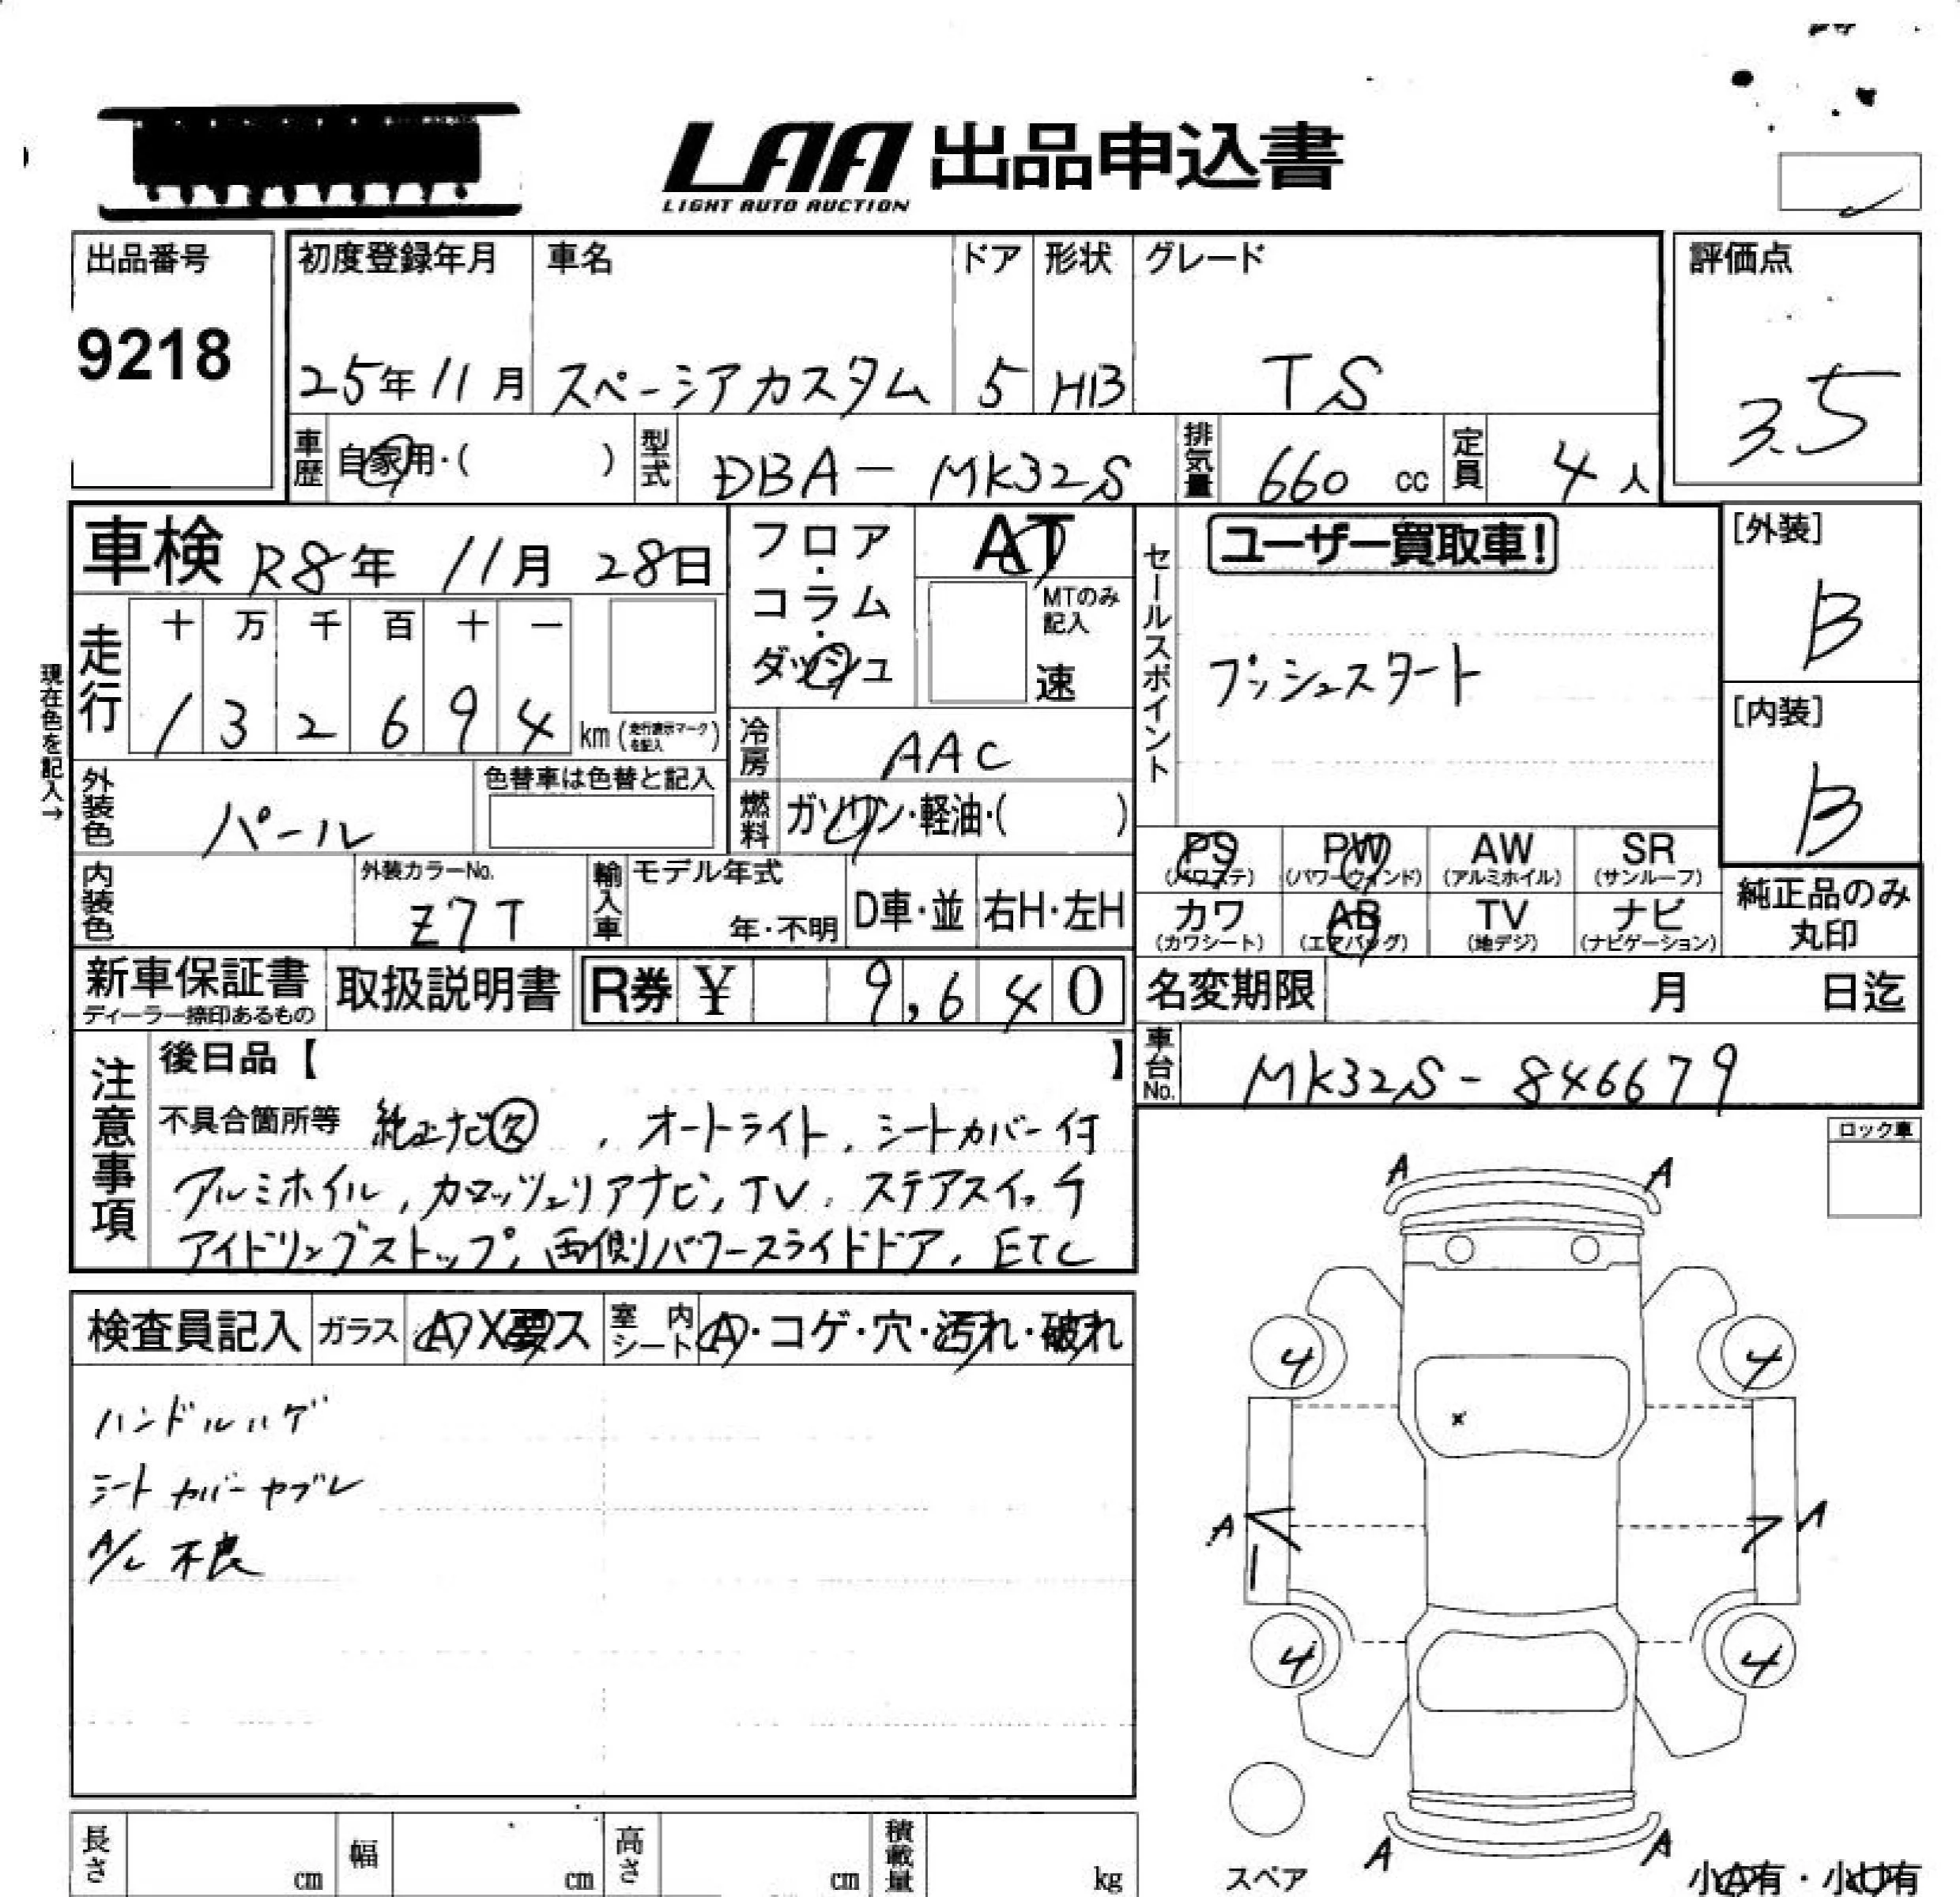 LAA 出品申込書
LIGHT AUTO AUCTION
出品番号
9218
初度登録年月
25年11月
車名
スペーシアカスタム
ドア
5
形状
HB
グレード
TS
評価点
3.5
車歴 自家用・( )
型式 DBA-MK32S
排気量 660 cc
定員 4人
車検 R8年 11月 28日
現在色を記入→
走行
十 万 千 百 十 一
1 3 2 6 9 4 km(走行表示マークを記入)
フロア・コラム・ダッシュ
AT
MTのみ記入
速
冷房 AAC
燃料 ガソリン・軽油・( )
外装色 パール
色替車は色替と記入
内装色
外装カラーNo.
Z7T
輸入車
モデル年式
年・不明
D車・並
右H・左H
新車保証書
ディーラー捺印あるもの
取扱説明書
R券 ¥ 9,640
セールスポイント
ユーザー買取車!
プッシュスタート
[外装]
B
[内装]
B
PS PW AW SR
(パワステ) (パワーウィンド) (アルミホイル) (サンルーフ)
カワ AB TV ナビ
(カワシート) (エアバッグ) (地デジ) (ナビゲーション)
純正品のみ
丸印
名変期限 月 日迄
車台No. MK32S-846679
注意事項
後日品【 】
不具合箇所等 オートライト, シートカバー付
アルミホイル, カロッツェリアナビ, TV, ステアスイッチ
アイドリングストップ, 両側パワースライドドア, ETC
ロック車
検査員記入
ガラス A X要ス
室内シート A・コゲ・穴・汚れ・破れ
ハンドルハゲ
シートカバーヤブレ
A/C 不良
A A
4 4
x
A A
4 4
A A
スペア
小A有・小U有
長さ cm
幅 cm
高さ cm
積載量 kg